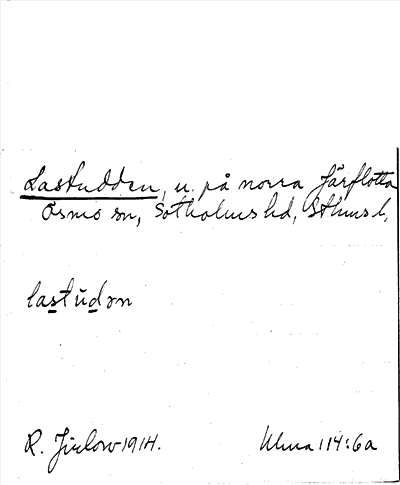 Lastudden, u. på norra Järflotta
Ösmo sn, Sotholms hd, Sthms l,
lastúdən
R. Jirlow 1914.
Ulma 114:6a